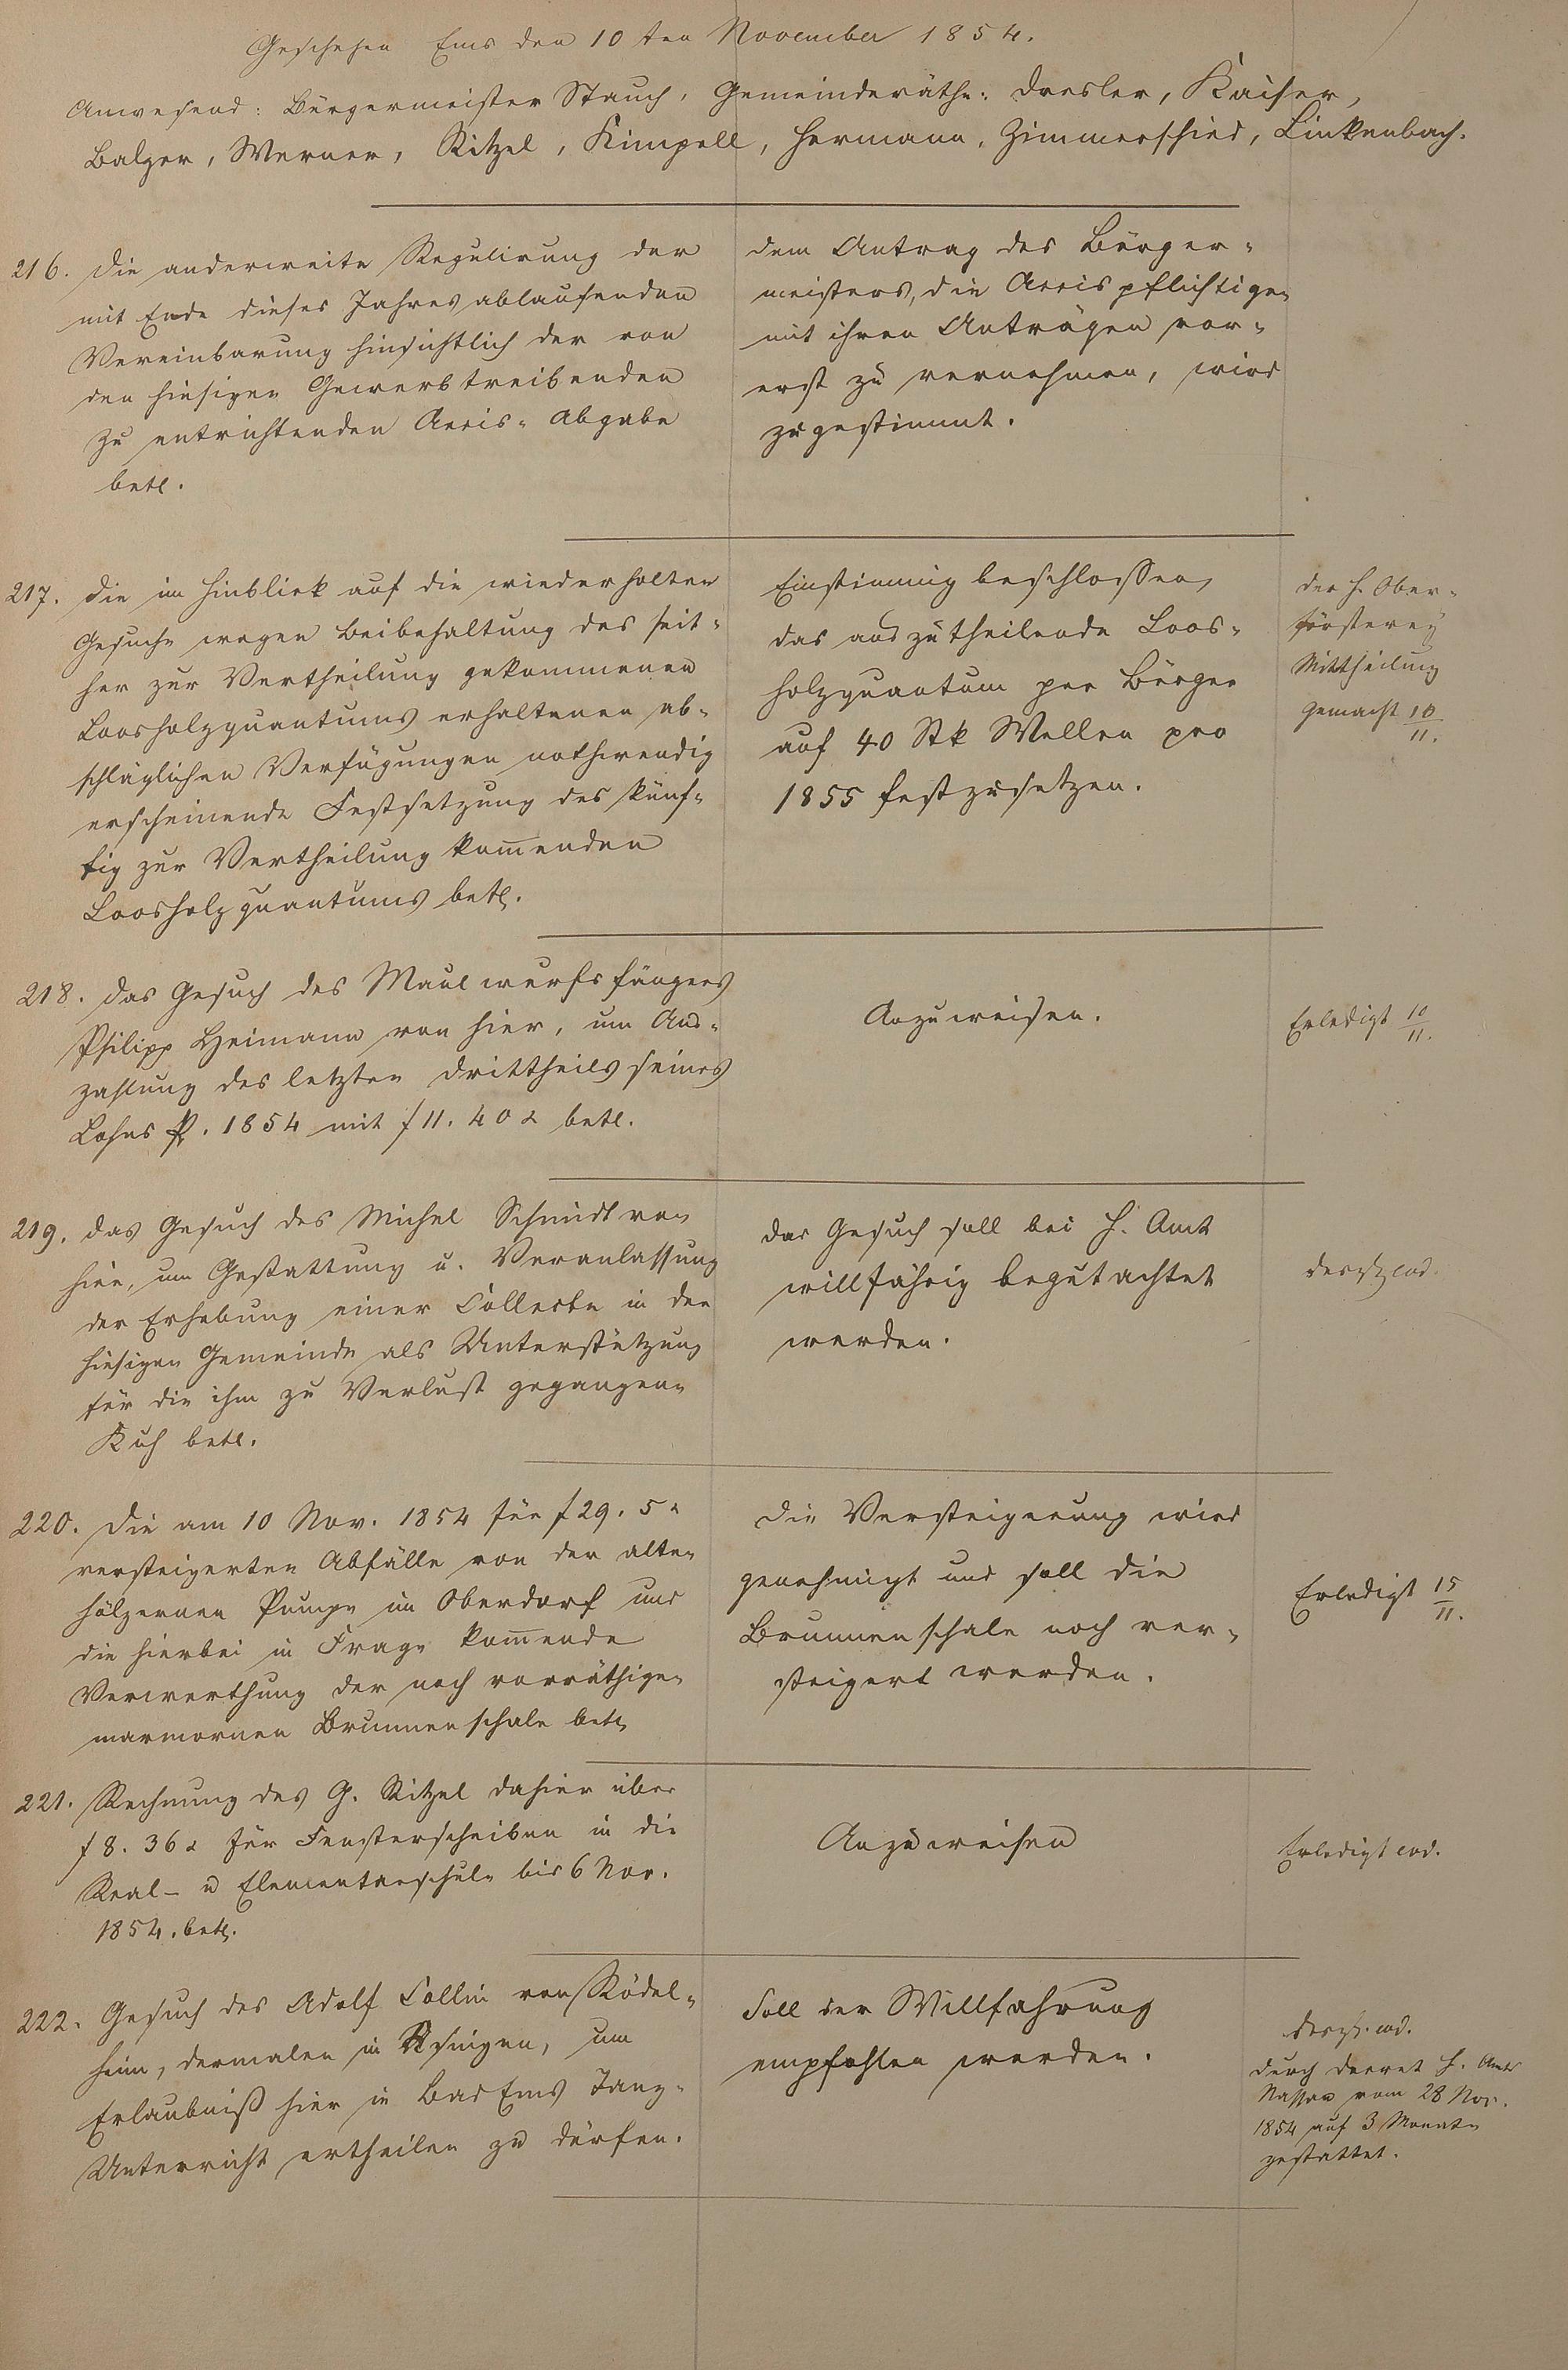 Geschehen Ems den 10ten November 1854.
Anwesend: Bürgermeister Stauch, Gemeinderäthe: Dresler, Kaiser,
Balzer, Werner, Ritzel, Kimpell, Hermann, Zimmerschied, Linkenbach.
216. Die anderweite Regulirung der
mit Ende dieses Jahres ablaufenden
Vereinbarung hinsichtlich der von
den hiesigen Gewerbtreibenden
zu entrichtenden Accis-Abgabe
betr.
Dem Antrag des Bürger-
meisters, die Accispflichtigen
mit ihren Anträgen vor-
erst zu vernehmen, wird
zugestimmt.
217. Die im Hinblick auf die wiederholten
Gesuche wegen Beibehaltung des seit-
her zur Vertheilung gekommenen
Loosholzquantums erhaltenen ab-
schläglichen Verfügungen nothwendig
erscheinende Festsetzung des künf-
tig zur Vertheilung kom̅enden
Loosholzquantums betr.
Einstimmig beschlossen,
das auszutheilende Loos-
holzquantum per Bürger
auf 40 Stk Wellen pro
1855 festzusetzen.
Der H. Ober-
försterey
Mittheilung
gemacht 10/11.
218. Das Gesuch des Maulwurfsfängers
Philipp Heimann von hier, um Aus-
zahlung des letzten Drittheils seines
Lohns p. 1854 mit f 11. 40 x betr.
Anzuweisen.
Erledigt 10/11.
219. Das Gesuch des Michel Schmidt von
hier, um Gestattung u. Veranlassung
der Erhebung einer Collecte in der
hiesigen Gemeinde als Unterstützung
für die ihm zu Verlust gegangene
Kuh betr.
Das Gesuch soll bei H. Amt
willfährig begutachtet
werden.
eod.
220. Die am 10 Nov. 1854 für f 29. 5 x
versteigerten Abfälle von der alten
hölzernen Pumpe im Oberdorf und
die hierbei in Frage kom̅ende
Verwerthung der noch vorräthigen
marmornen Brunnenschale betr.
Die Versteigerung wird
genehmigt und soll die
Brunnenschale noch ver-
steigert werden.
Erledigt 15/11.
221. Rechnung des G. Ritzel dahier über
f 8. 36 x für Fensterscheiben in die
Real- u Elementarschule bis 6 Nov.
1854. betr.
Anzuweisen
Erledigt eod.
222. Gesuch des Adolf Collin von Rödel-
heim, dermalen in Usingen, um
Erlaubniß hier in Bad Ems Tanz-
Unterricht ertheilen zu dürfen.
Soll der Willfahrung
empfohlen werden.
eod.
Durch Decret H. Amts
Nassau vom 28 Nov.
1854 auf 3 Monate
gestattet.